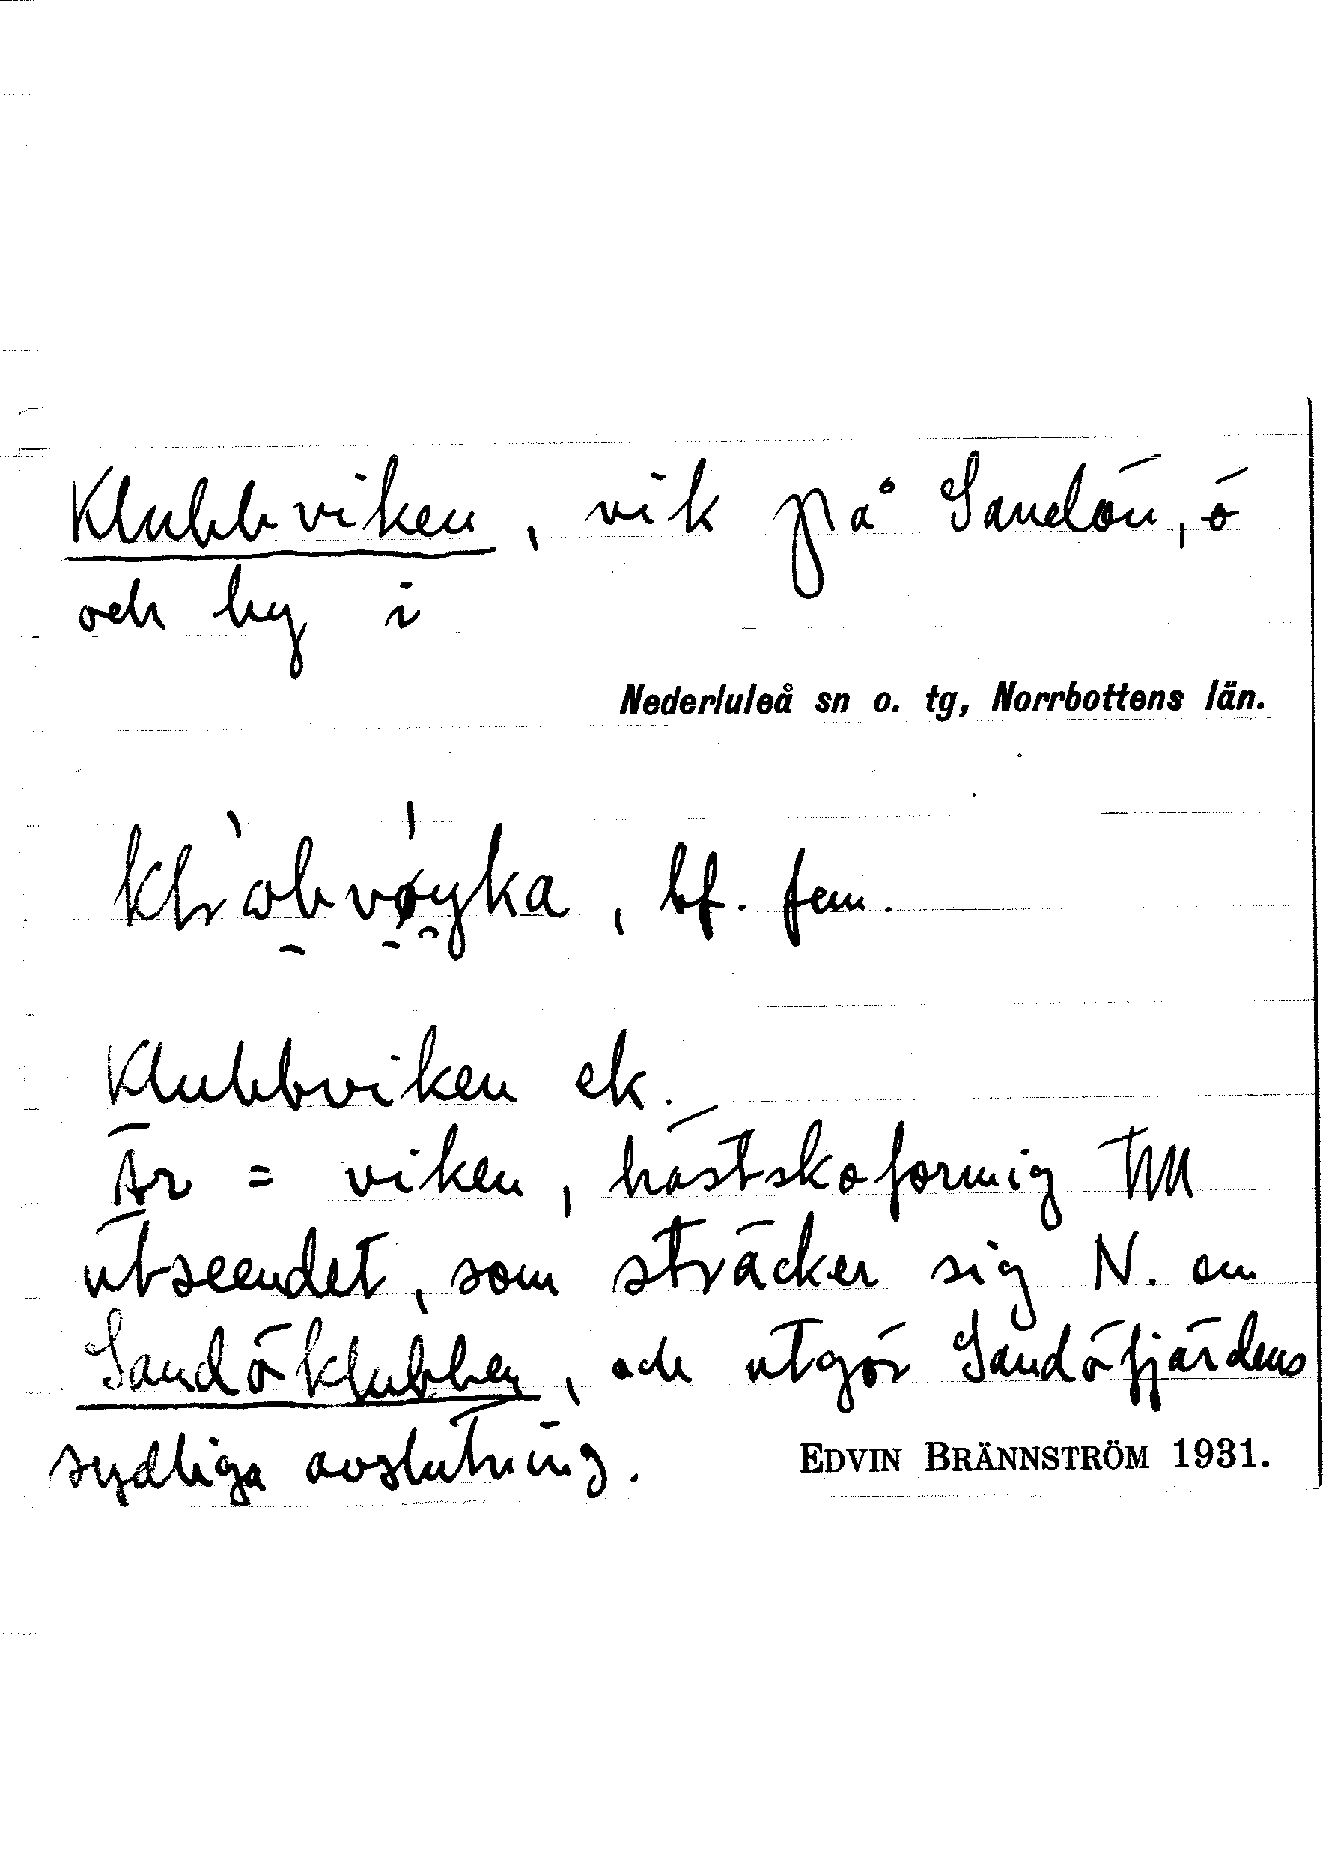 Klubbviken, vik på Sandön, ö
och by i
Nederluleå sn o. tg, Norrbottens län.
bf. fem.
Klubbviken ek.
Är = viken, hästskoformig till
utseendet, som sträcker sig N. om
Sandöklubben, och utgör Sandöfjärdens
sydliga avslutning.
EDVIN BRÄNNSTRÖM 1931.